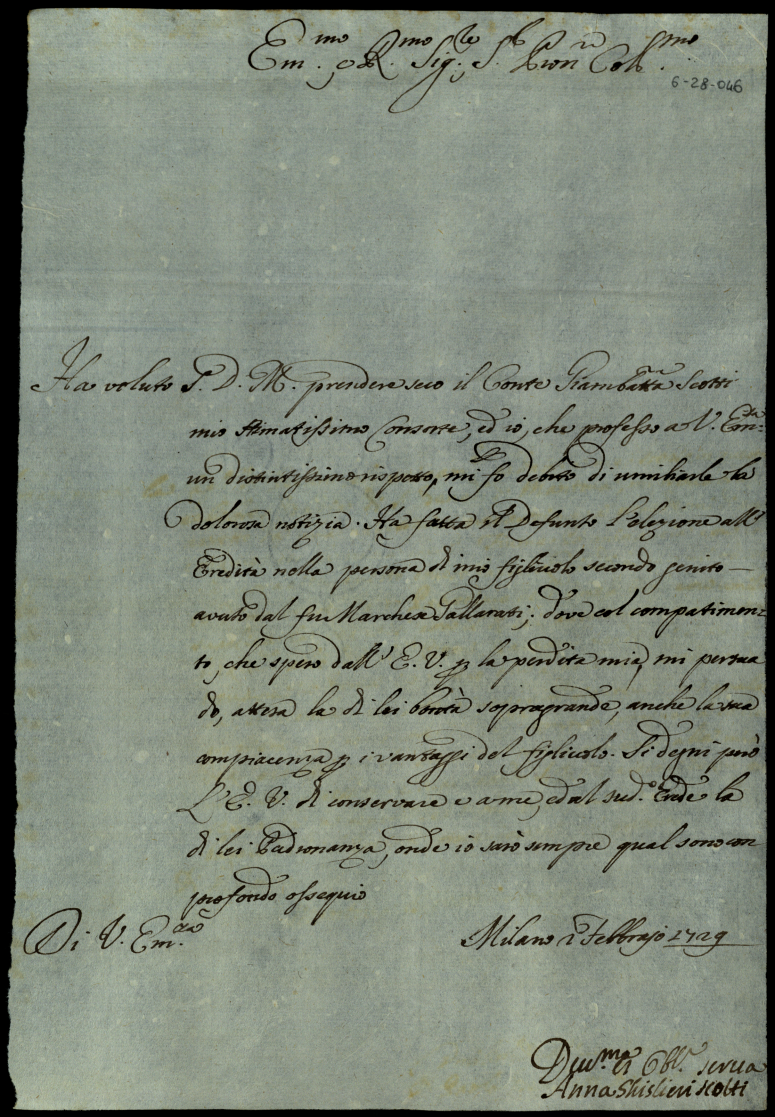 Em.mo e R.mo Sig.re S.r Pron Col.mo
6-28-046
Ha voluto S. D. M. prendere seco il Conte Giambatta Scotti
mio stimatissimo Consorte, ed io, che professo a V. Em.za
un distintissimo rispetto, mi fo debito di umiliarle la
dolorosa notizia. Ha fatta il Defunto l'elezione all'
Eredità nella persona di mio figliuolo secondo genito
avuto dal fu Marchese Gallarati; dove col compatimen=
to, che spero dall' E. V. p la perdita mia, mi persua
do, attesa la di lei bontà sopragrande, anche la sua
compiacenza p i vantaggi del figliuolo. Si degni però
L'E. V. di conservare e a me, ed al sud.o Erede la
di lei Padronanza, onde io sarò sempre qual sono con
profondo ossequio
Di V. Em.za
Milano Febbrajo 1729
Dev.ma ed Obbl. serva
Anna Ghislieri Scotti